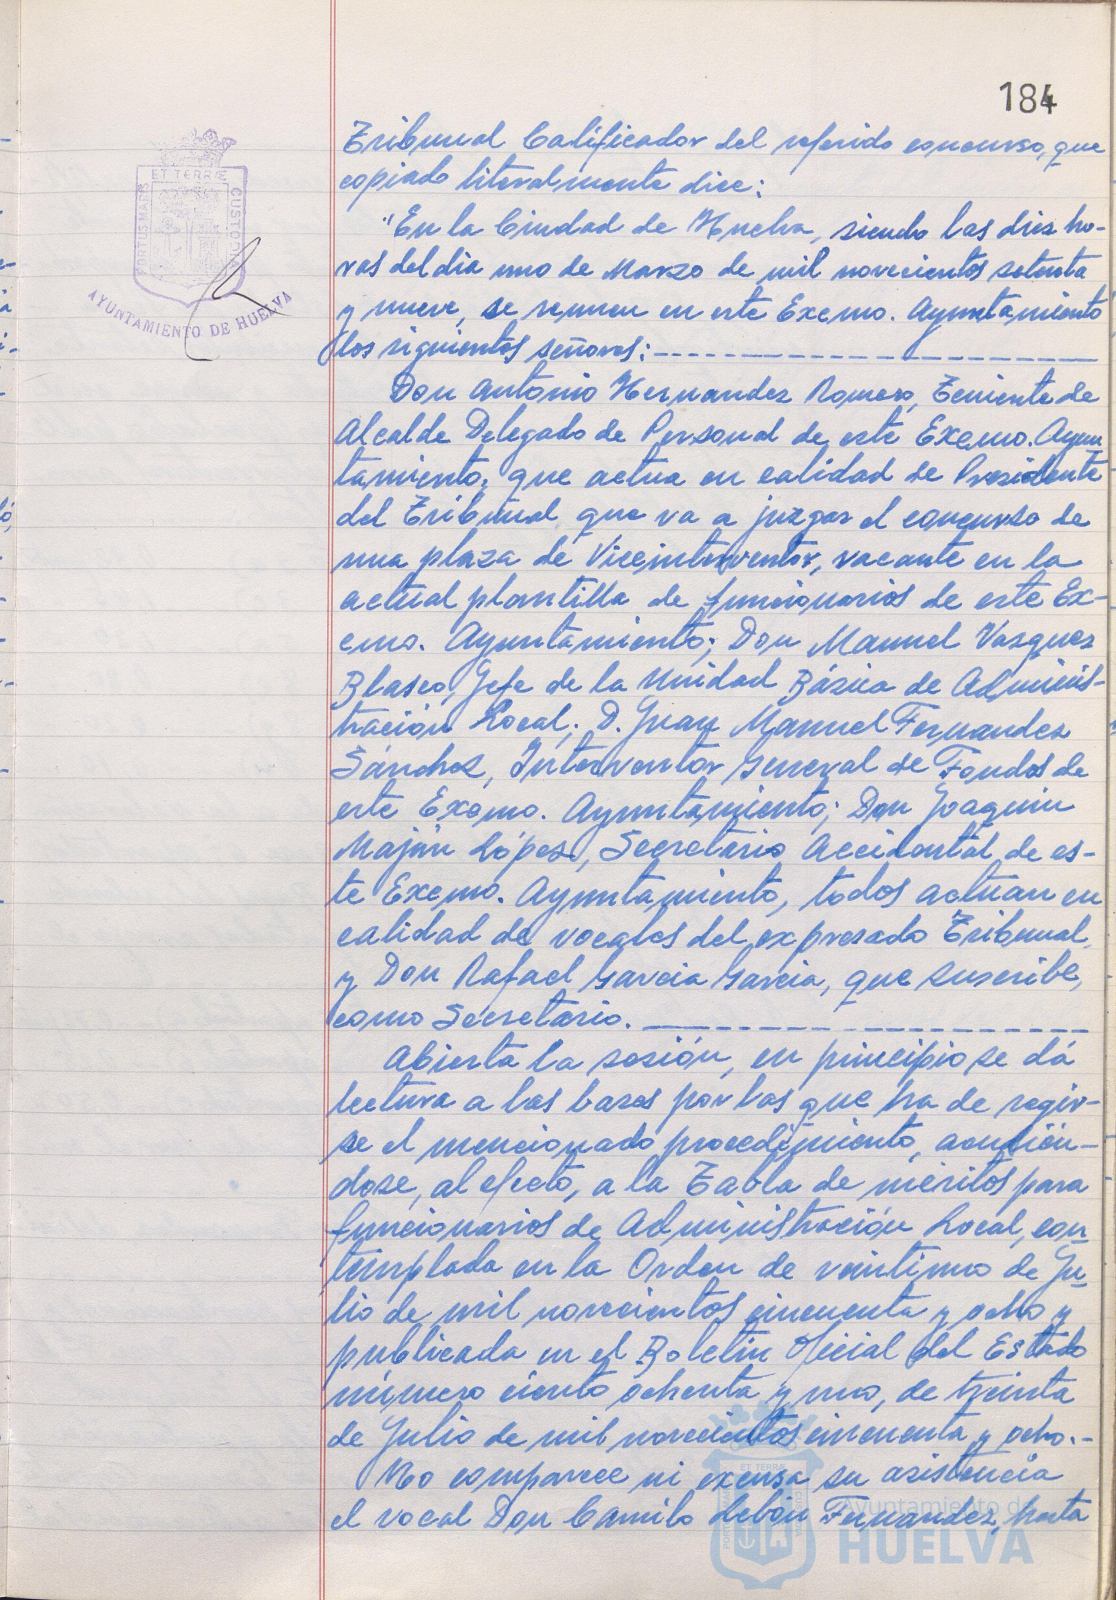 184
Tribunal Calificador del referido concurso, que
copiado literalmente dice:
"En la Ciudad de Huelva, siendo las diez ho-
ras del dia uno de Marzo de mil novecientos setenta
y nueve, se reunen en este Excmo. Ayuntamiento
los siguientes señores:
Don Antonio Hernandez Romero, Teniente de
Alcalde Delegado de Personal de este Excmo. Ayun
tamiento, que actua en calidad de Presidente
del Tribunal que va a juzgar el concurso de
una plaza de Viceinterventor, vacante en la
actual plantilla de funcionarios de este Ex-
cmo. Ayuntamiento; Don Manuel Vazquez
Blasco, Jefe de la Unidad Básica de Adminis-
tración Local; D. Juan Manuel Fernandez
Sánchez, Interventor General de Fondos de
este Excmo. Ayuntamiento; Don Joaquin
Maján López, Secretario Accidental de es-
te Excmo. Ayuntamiento, todos actuan en
calidad de vocales del expresado Tribunal,
y Don Rafael Garcia Garcia, que suscribe,
como Secretario.
Abierta la sesión, en principio se dá
lectura a las bases por las que ha de regir-
se el mencionado procedimiento, acudién-
dose, al efecto, a la Tabla de méritos para
funcionarios de Administración Local, con
templada en la Orden de veintiuno de Ju
lio de mil novecientos cincuenta y ocho y
publicada en el Boletin Oficial del Estado
número ciento ochenta y uno, de treinta
de Julio de mil novecientos cincuenta y ocho.-
No comparece ni excusa su asistencia
el vocal Don Camilo Lebón Fernandez, hasta
PORTUS MARIS ET TERRÆ CUSTODIA
AYUNTAMIENTO DE HUELVA
ET TERRÆ
Ayuntamiento de
HUELVA